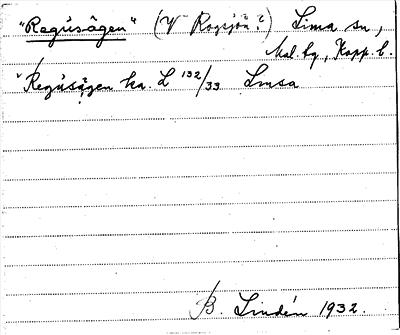 "Regusågen" (V Rogsjön?) Lima sn,
Mal. tg, Kopp. l.
"Regúsågen ka. L 132/33 Lmsa
B. Lindén 1932.